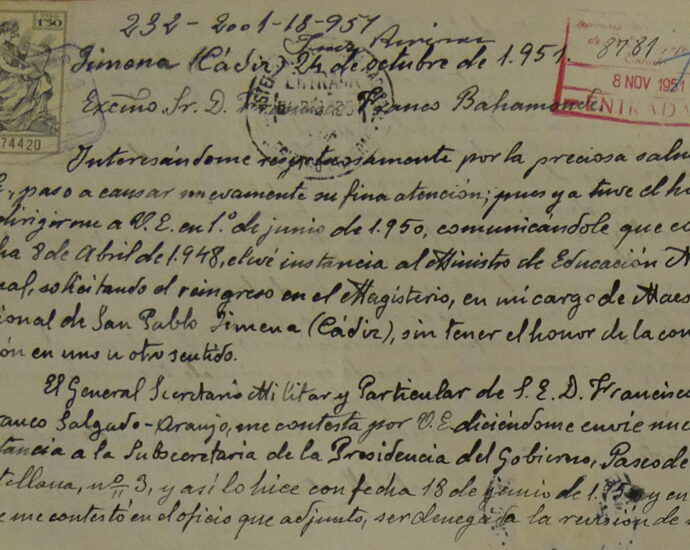 232-2001-18-951
1'50
Jimena (Cádiz) 24 de octubre de 1.951.
8781
8 NOV 1951
ENTRADA
ENTRADA
74420
Excmo. Sr. D. Franco Bahamonde
Interesándome respetuosamente por la preciosa salu
paso a causar nuevamente su fina atención; pues ya tuve el ho
dirigirme a V.E. en 1.º de junio de 1.950, comunicándole que co
ha 8 de Abril de 1.948, elevé instancia al Ministro de Educación N
nal, solicitando el reingreso en el Magisterio, en mi cargo de Maes
cional de San Pablo Jimena (Cádiz), sin tener el honor de la con
ón en uno u otro sentido.
El General Secretario Militar y Particular de S.E.D. Francisco
ranco Salgado-Araujo, me contesta por V.E. diciéndome envíe nue
tancia a la Subsecretaria de la Presidencia del Gobierno, Paseo de
tellana, nº 3, y así lo hice con fecha 18 de junio de 1.950 y en
e me contestó en el oficio que adjunto, ser denegada la revisión de